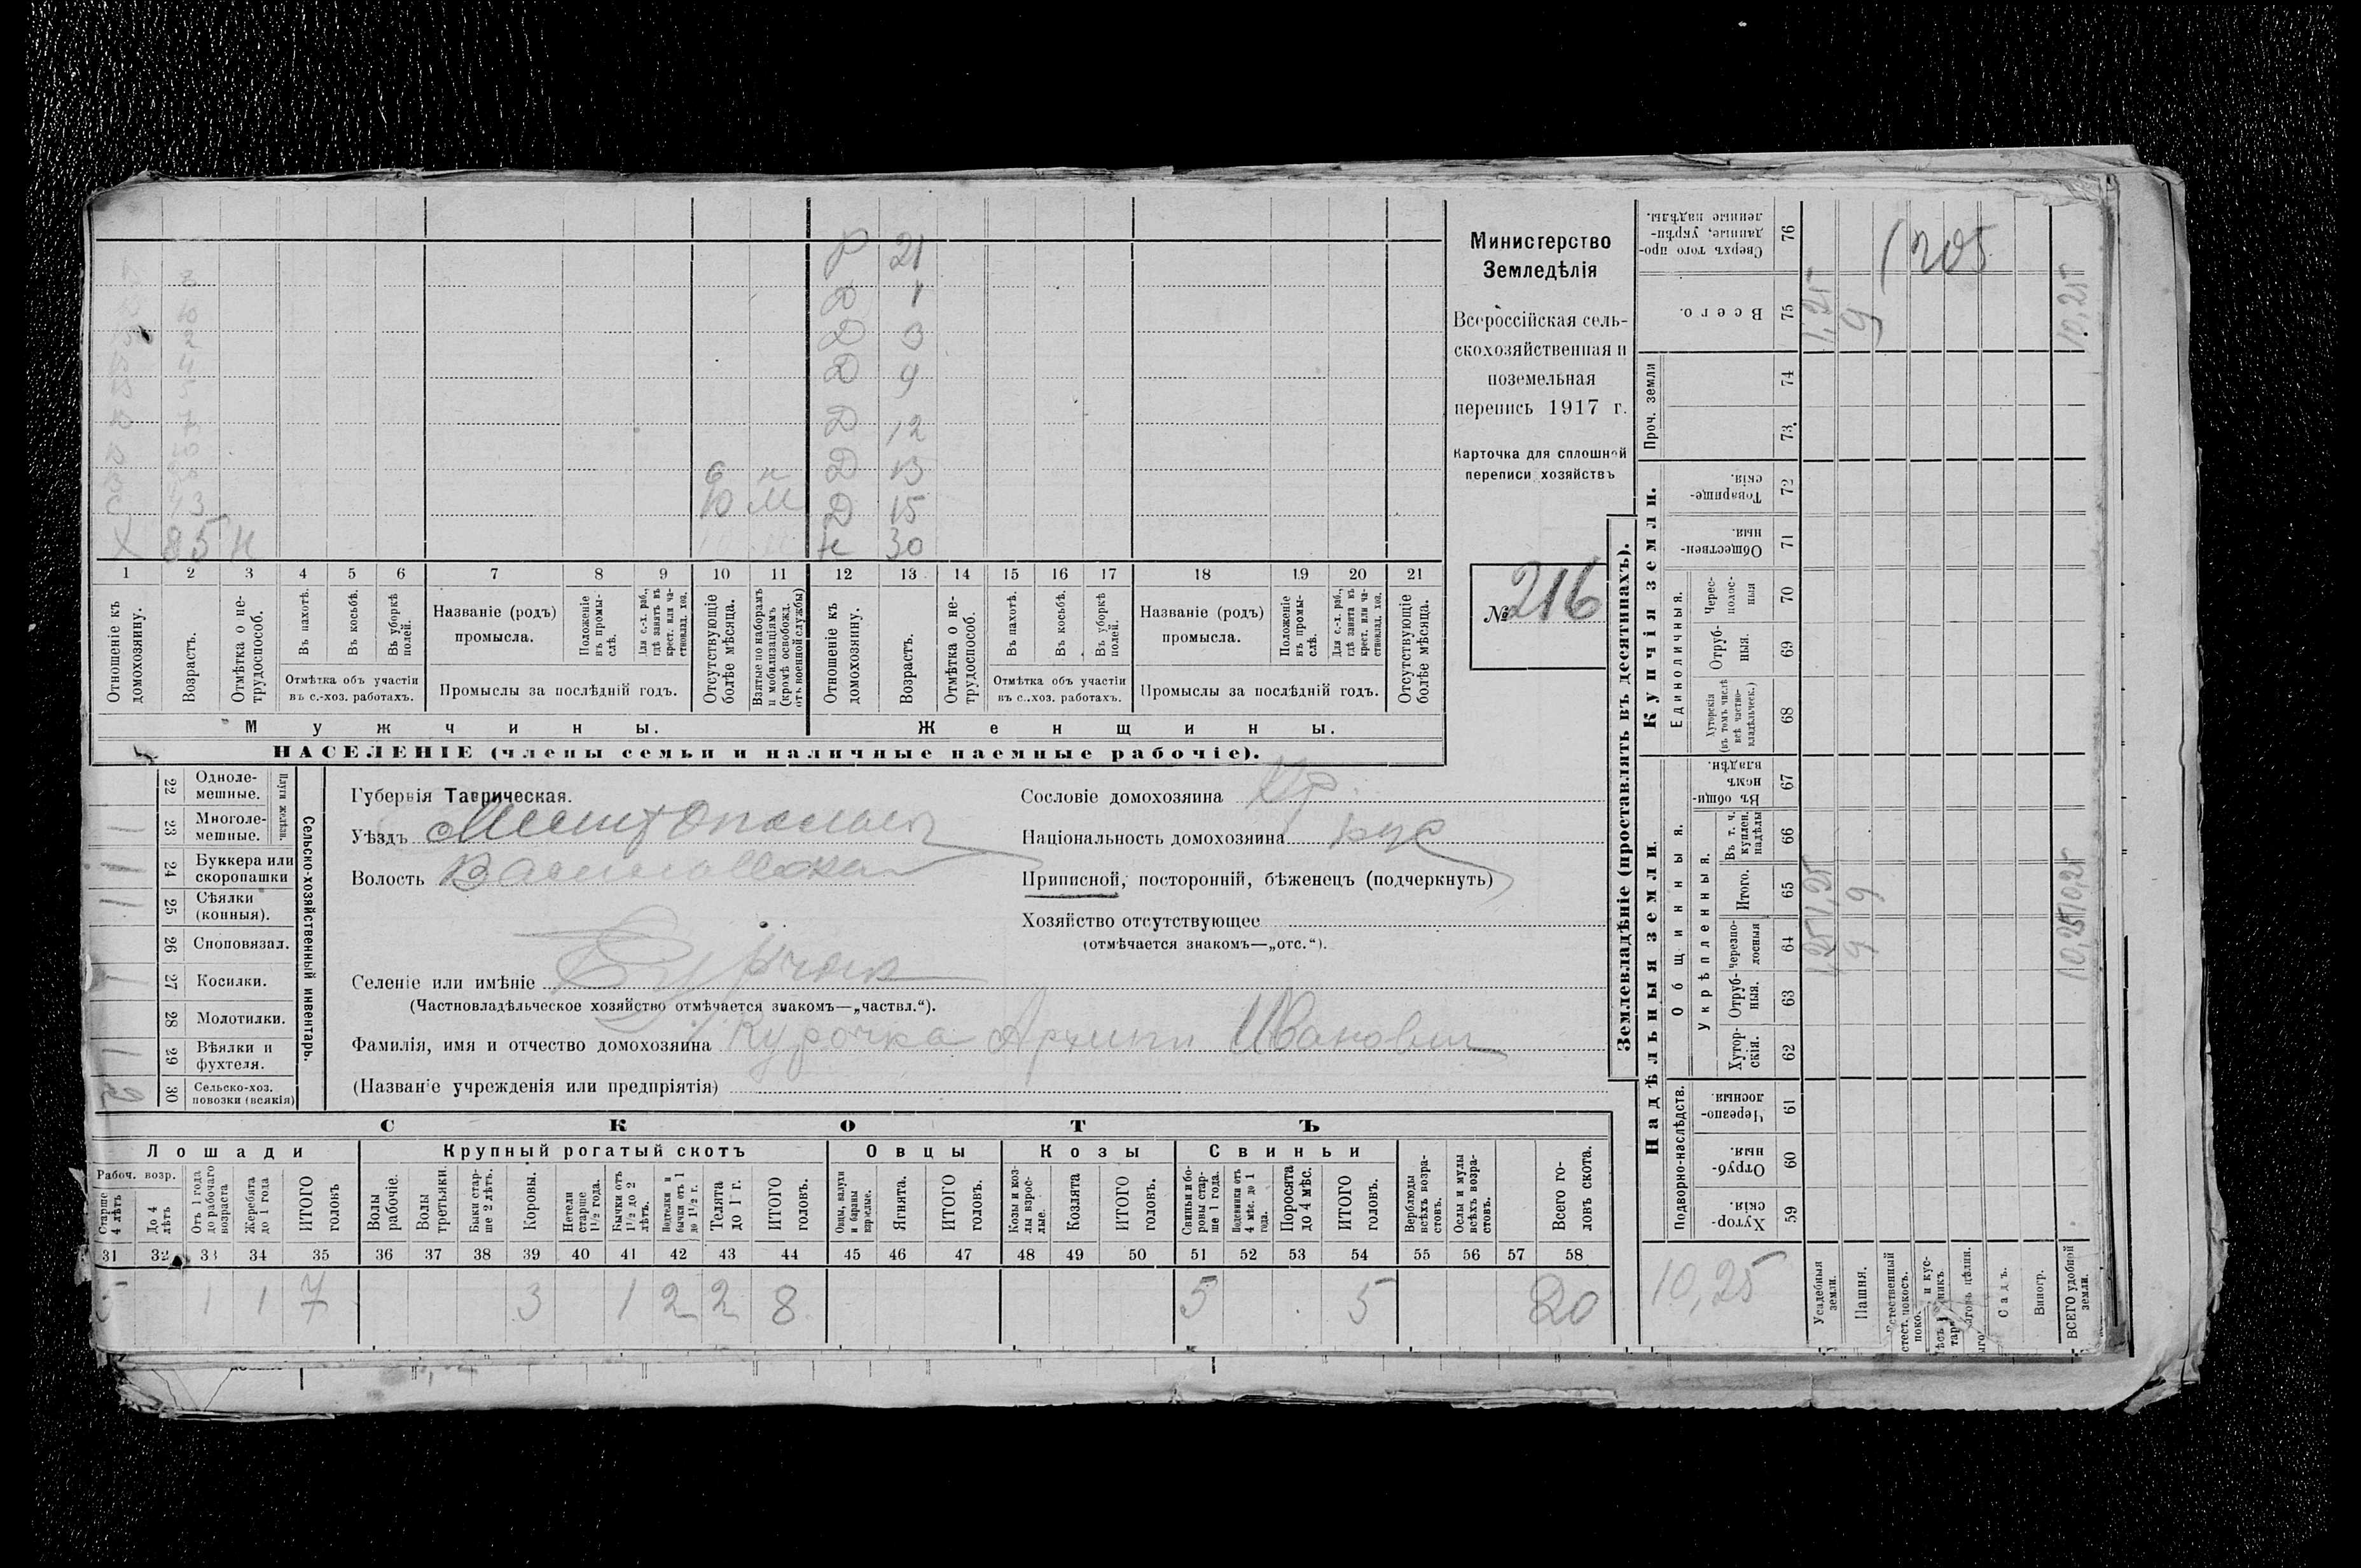 Р 21
Д 1
Д 3
Д 9
Д 12
Д 13
Д 15
30
Х 85 Н
1 2 3 4 5 6 7 8 9 10 11 12 13 14 15 16 17 18 19 20 21
Отношеніе къ домохозяину.
Возрастъ.
Отмѣтка о нетрудоспособ.
Въ пахотѣ.
Въ косьбѣ.
Въ уборкѣ полей.
Отмѣтка объ участіи
въ с.-хоз. работахъ.
Названіе (родъ)
промысла.
Положеніе въ промыслѣ.
Для с.-х. раб., гдѣ занятъ въ крест. или частновлад. хоз.
Промыслы за послѣдній годъ.
Отсутствующіе болѣе мѣсяца.
Взятые по наборамъ и мобилизаціямъ (кромѣ освобожд. отъ военной службы)
Отношеніе къ домохозяину.
Возрастъ.
Отмѣтка о нетрудоспособ.
Въ пахотѣ.
Въ косьбѣ.
Въ уборкѣ полей.
Отмѣтка объ участіи
въ с.-хоз. работахъ.
Названіе (родъ)
промысла.
Положеніе въ промыслѣ.
Для с.-х. раб., гдѣ занята въ крест. или частновлад. хоз.
Промыслы за послѣдній годъ.
Отсутствующіе болѣе мѣсяца.
Мужчины.
Женщины.
НАСЕЛЕНІЕ (члены семьи и наличные наемные рабочіе).
Министерство
Земледѣлія
Всероссійская сель-
скохозяйственная и
поземельная
перепись 1917 г.
Карточка для сплошной
переписи хозяйствъ
№ 216
Сельско-хозяйственный инвентарь.
Плуги желѣзн.
22 Одноле-
мешные.
23 Многоле-
мешные.
24 Буккера или
скоропашки
25 Сѣялки
(конныя).
26 Сноповязал.
27 Косилки.
28 Молотилки.
29 Вѣялки и
фухтеля.
30 Сельско-хоз.
повозки (всякія)
2
Губернія Таврическая.
Уѣздъ Мелитопольск
Волость Васильевская
Селеніе или имѣніе Бурчак
(Частновладѣльческое хозяйство отмѣчается знакомъ—„частвл.“).
Фамилія, имя и отчество домохозяина Курочка Архипъ Иванович
(Названіе учрежденія или предпріятія)
Сословіе домохозяина Кр.
Національность домохозяина рус
Приписной, посторонній, бѣженецъ (подчеркнуть)
Хозяйство отсутствующее
(отмѣчается знакомъ—„отс.“).
СКОТЪ
Лошади Крупный рогатый скотъ Овцы Козы Свиньи
Рабоч. возр.
Старше 4 лѣтъ
До 4 лѣтъ
Отъ 1 года до рабочаго возраста
Жеребята до 1 года
ИТОГО головъ
Волы рабочіе.
Волы третьяки.
Быки старше 2 лѣтъ.
Коровы.
Нетели старше 1½ года.
Бычки отъ 1½ до 2 лѣтъ.
Подтелки и бычки отъ 1 до 1½ г.
Телята до 1 г.
ИТОГО головъ.
Овцы, валухи и бараны взрослые.
Ягнята.
ИТОГО головъ.
Козы и козлы взрослые.
Козлята
ИТОГО головъ.
Свиньи и боровы старше 1 года.
Подсвинки отъ 4 мѣс. до 1 года.
Поросята до 4 мѣс.
ИТОГО головъ.
Верблюды всѣхъ возрастовъ.
Ослы и мулы всѣхъ возрастовъ.
Всего головъ скота.
31 32 33 34 35 36 37 38 39 40 41 42 43 44 45 46 47 48 49 50 51 52 53 54 55 56 57 58
1 1 7 3 1 2 2 8 5 5 20
Землевладѣніе (проставлять въ десятинахъ).
Надѣльныя земли.
Купчія земли.
Проч. земли
Подворно-наслѣдств.
Общинныя.
Укрѣпленныя.
Единоличныя.
Сверхъ того проданные, укрѣпленные надѣлы. 76
Всего. 75
74
73
Товарищескія. 72
Общественныя. 71
Черес-полос-ныя 70
Отруб-ныя. 69
Хуторскія (въ томъ числѣ всѣ частновладѣльческ.) 68
Въ общинномъ владѣн. 67
Въ т. ч. куплен. надѣлы 66
Итого. 65
Черезполосныя 64
Отруб-ныя. 63
Хутор-скія. 62
Черезпо-лосныя. 61
Отруб-ныя. 60
Хутор-скія. 59
10,25
Усадебныя земли.
Пашня.
Садъ.
Виногр.
ВСЕГО удобной земли.
1,25 1,25 1,25
9 9 9
205
10,25 10,25 10,25